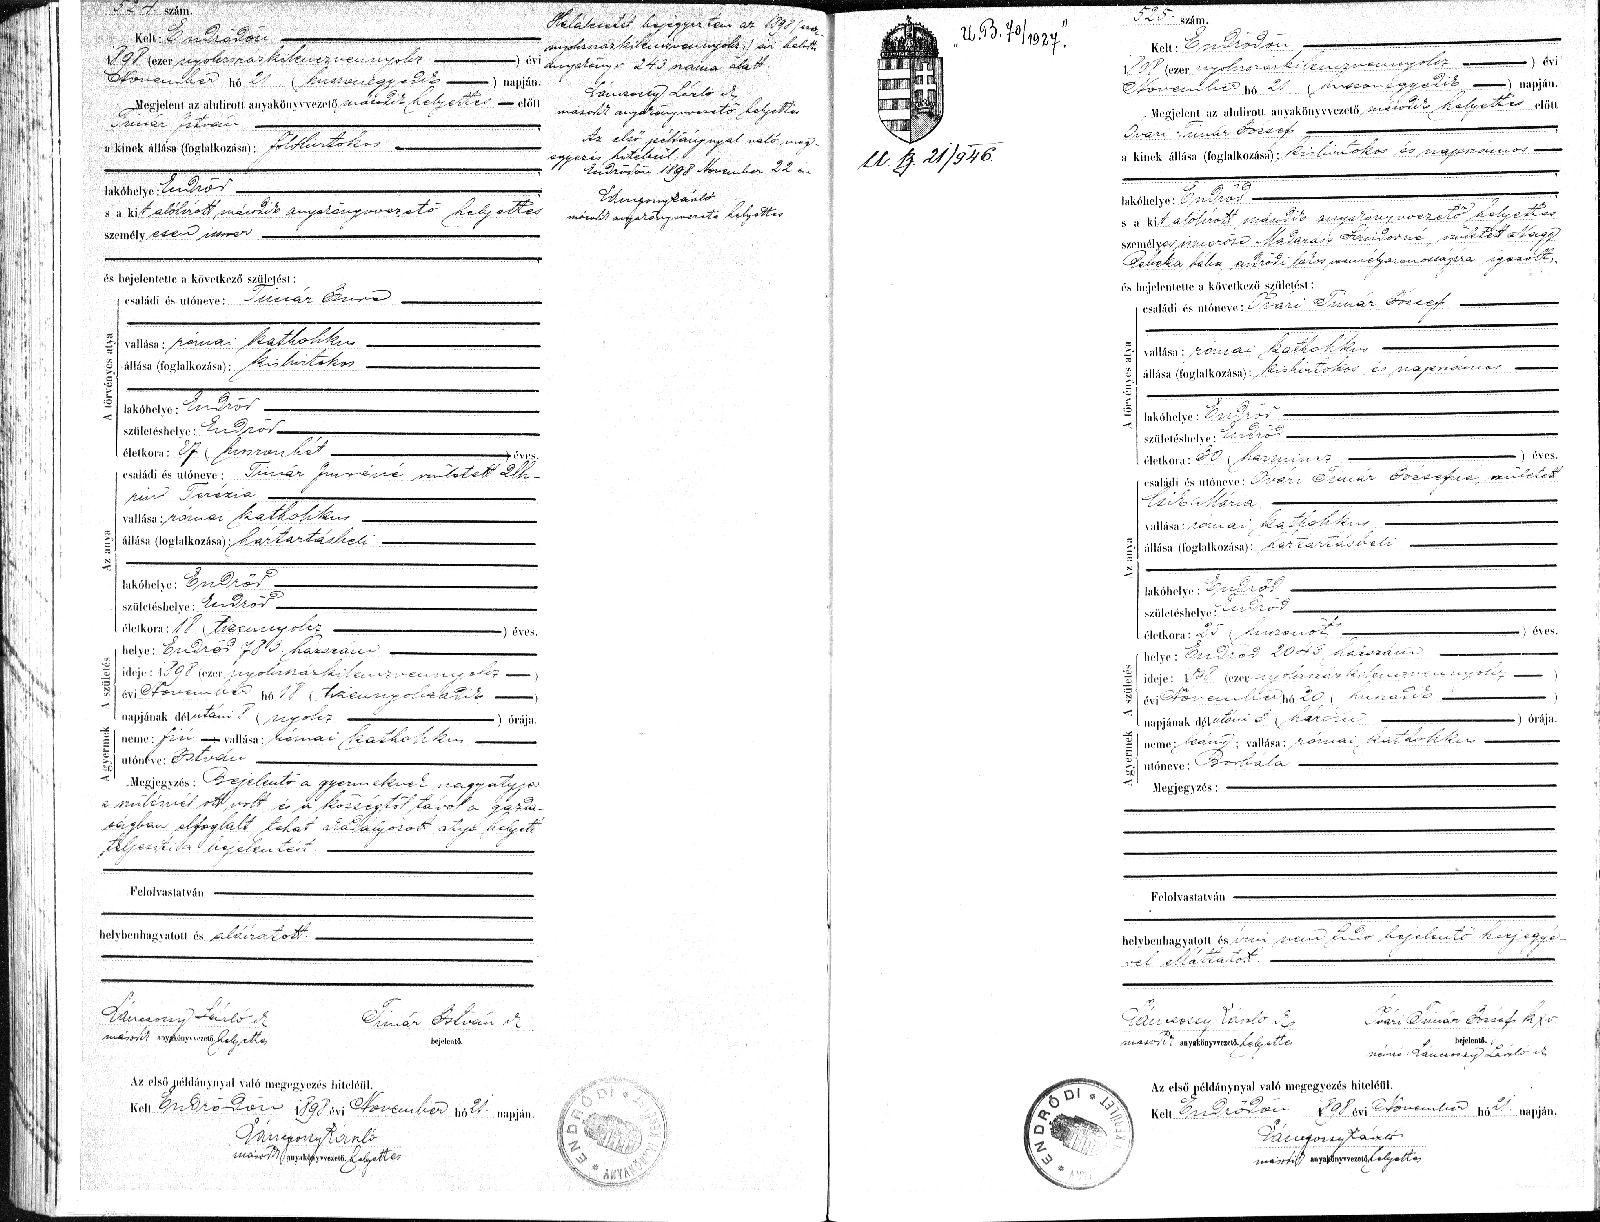 524. szám.
Kelt: Endrődön
1898 (ezer nyolczszázkilenczvennyolcz) évi
November hó 21 (huszonegyedik) napján.
Megjelent az alulirott anyakönyvvezető második helyettes előtt
Timár István
a kinek állása (foglalkozása): földbirtokos
lakóhelye: Endrőd
s a kit alólirott második anyakönyvvezető helyettes
személyesen ismer
és bejelentette a következő születést:
A törvényes atya
családi és utóneve: Timár Imre
vallása: római katholikus
állása (foglalkozása): kisbirtokos
lakóhelye: Endrőd
születéshelye: Endrőd
életkora: 27 (huszonhét) éves.
Az anya
családi és utóneve: Timár Imréné született
Terézia
vallása: római katholikus
állása (foglalkozása): háztartásbeli
lakóhelye: Endrőd
születéshelye: Endrőd
életkora: 18 (tizennyolcz) éves.
A születés
helye: Endrőd 783 házszám
ideje: 1898 (ezer nyolczszázkilenczvennyolcz)
évi November hó 18 (tizennyolczadik)
napjának délutáni 8 (nyolcz) órája.
A gyermek
neme: fiú vallása: római katholikus
utóneve: István
Megjegyzés: Bejelentő a gyermeknek nagyatyja
a szülésnél ott volt és a községtől távol a gazda-
ságban elfoglalt tehát akadályozott atya helyett
teljesíti a bejelentést.
Felolvastatván
helybenhagyatott és aláiratott.
Lánczosy László sk
második anyakönyvvezető helyettes
Timár István sk
bejelentő.
Az első példánynyal való megegyezés hiteléül.
Kelt Endrődön 1898 évi November hó 21 napján.
Lánczosy László
második anyakönyvvezető helyettes
ENDRŐDI
Halálesetét bejegyeztem az 1898 (ezer
nyolczszázkilenczvennyolcz) évi halotti
anyakönyv 243 száma alatt.
Lánczosy László sk
második anyakönyvvezető helyettes
Az első példánynyal való meg-
egyezés hiteléül.
Endrődön 1898 November 22 én
Lánczosy László
második anyakönyvvezető helyettes
"U.B. 70/1927."
U. 21/946.
525. szám.
Kelt: Endrődön
1898 (ezer nyolczszázkilenczvennyolcz) évi
November hó 21 (huszonegyedik) napján.
Megjelent az alulirott anyakönyvvezető második helyettes előtt
Óvári Timár József
a kinek állása (foglalkozása): kisbirtokos és napszámos
lakóhelye: Endrőd
s a kit alólirott második anyakönyvvezető helyettes
személyes ismerőse Madaras Sándorné született Nagy
Rebeka bába endrődi lakos személyazonosságára igazolt,
és bejelentette a következő születést:
A törvényes atya
családi és utóneve: Óvári Timár József
vallása: római katholikus
állása (foglalkozása): kisbirtokos és napszámos
lakóhelye: Endrőd
születéshelye: Endrőd
életkora: 30 (harmincz) éves.
Az anya
családi és utóneve: Óvári Timár Józsefné, született
Mária
vallása: római katholikus
állása (foglalkozása): háztartásbeli
lakóhelye: Endrőd
születéshelye: Endrőd
életkora: 25 (huszonöt) éves.
A születés
helye: Endrőd 2043 házszám
ideje: 1898 (ezer nyolczszázkilenczvennyolcz)
évi November hó 20 (huszadik)
napjának délutáni 3 (három) órája.
A gyermek
neme: leány; vallása: római katholikus
utóneve: Borbála
Megjegyzés:
Felolvastatván
helybenhagyatott és írni nem tudó bejelentő kézjegyé-
vel elláttatott.
Lánczosy László sk
második anyakönyvvezető helyettes
Óvári Timár József
bejelentő.
névíró Lánczosy László sk
Az első példánynyal való megegyezés hiteléül.
Kelt Endrődön 1898 évi November hó 21 napján.
Lánczosy László
második anyakönyvvezető helyettes
ENDRŐDI